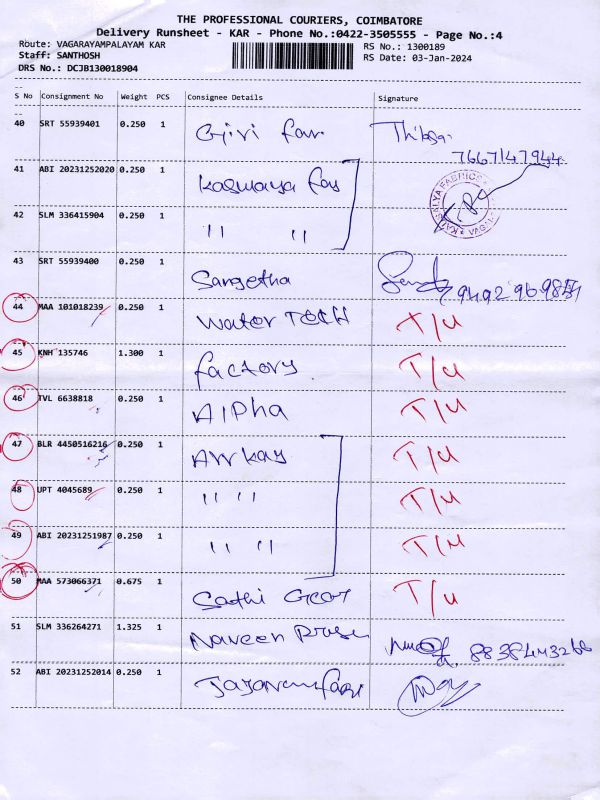 THE PROFESSIONAL COURIERS, COIMBATORE
Delivery Runsheet - KAR - Phone No.:0422-3505555 - Page No.:4
Route: VAGARAYAMPALAYAM KAR RS No.: 1300189
Staff: SANTHOSH RS Date: 03-Jan-2024
DRS No.: DCJB130018904
S No Consignment No Weight PCS Consignee Details Signature
40 SRT 55939401 0.250 1 Giri
7667147944
41 ABI 20231252020 0.250 1
42 SLM 336415904 0.250 1 " "
43 SRT 55939400 0.250 1 Sangetha
44 MAA 101018239 0.250 1 Water TECH T/u
45 KNH 135746 1.300 1 factory T/u
46 TVL 6638818 0.250 1 Alpha T/u
47 BLR 4450516216 0.250 1 T/u
48 UPT 4045689 0.250 1 " " T/u
49 ABI 20231251987 0.250 1 " " T/u
50 MAA 573066371 0.675 1 Sathi T/u
51 SLM 336264271 1.325 1 Naveen
52 ABI 20231252014 0.250 1